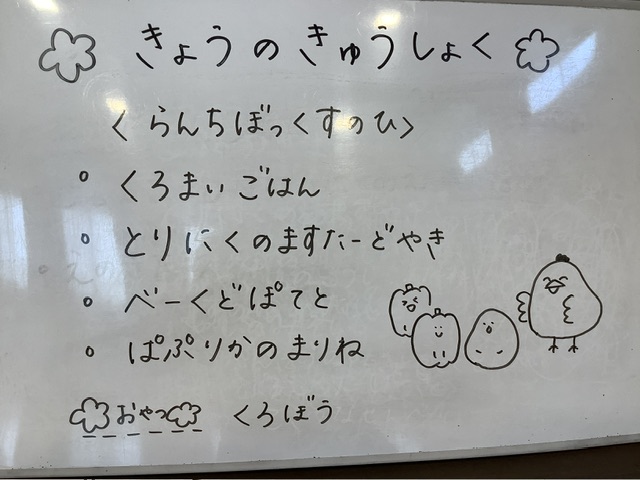 きょうのきゅうしょく
〈らんちぼっくすのひ〉
くろまいごはん
とりにくのますたーどやき
べーくどぽてと
ぱぷりかのまりね
おやつ くろぼう